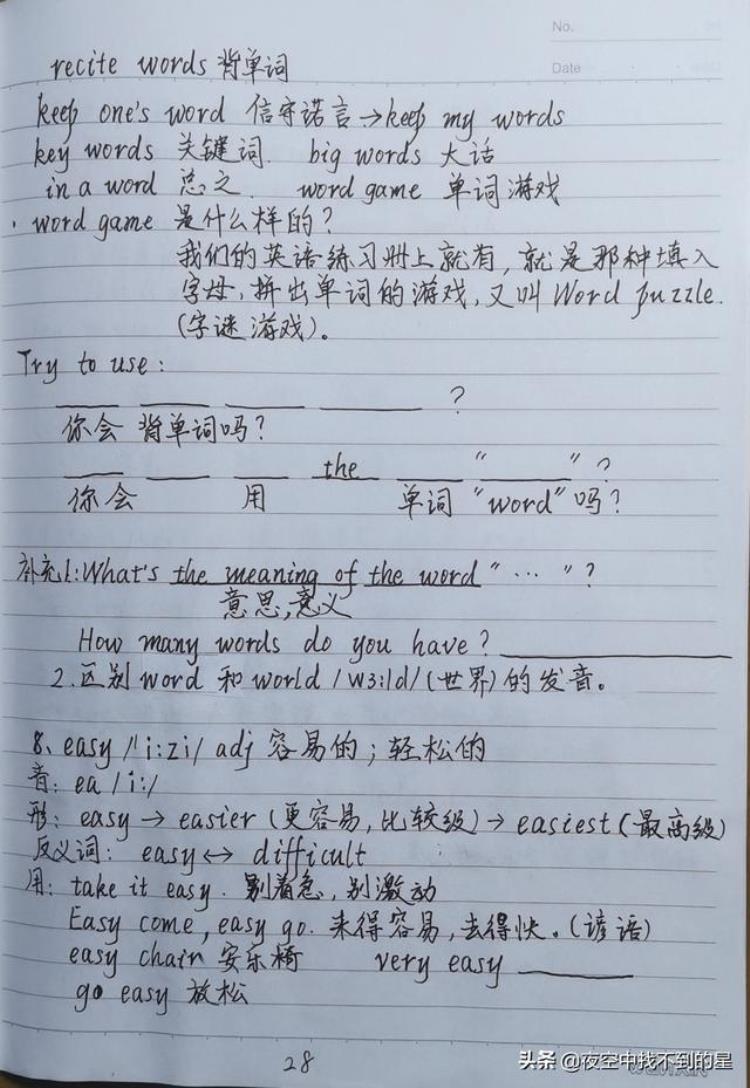 No.
Date
recite words 背单词
keep one's word 信守诺言→keep my words
key words 关键词. big words 大话
in a word 总之. word game 单词游戏
· word game 是什么样的？
我们的英语练习册上就有，就是那种填入
字母，拼出单词的游戏，又叫Word puzzle.
(字谜游戏)。
Try to use:
____ ____ ____ ____ ?
你会 背单词吗？
____ ____ ____ the ____ "____"?
你会 用 单词 "word"吗？
补充1:What's the meaning of the word "…"?
意思,意义
How many words do you have? ____
2.区别word 和world /wɜ:ld/(世界)的发音。
8、easy /'i:zi/ adj 容易的；轻松的
音: ea /i:/
形: easy → easier (更容易,比较级)→ easiest(最高级)
反义词: easy↔ difficult
用: take it easy. 别着急,别激动
Easy come, easy go. 来得容易,去得快。(谚语)
easy chair 安乐椅 very easy ____
go easy 放松
28
头条 @夜空中找不到的星